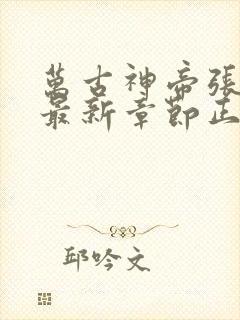 萬古神帝張
最新章節正
邱吟文